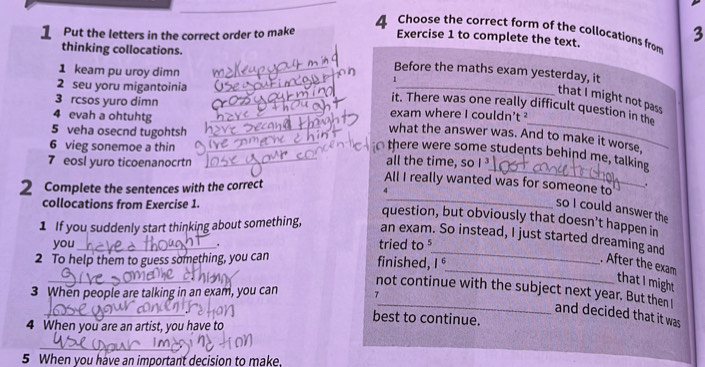 1 Put the letters in the correct order to make
thinking collocations.
1 keam pu uroy dimn make up your mind
2 seu yoru migantoinia use your imagination
3 rcsos yuro dimn cross your mind
4 evah a ohtuhtg have a thought
5 veha osecnd tugohtsh have second thoughts
6 vieg sonemoe a thin give someone a hint
7 eosl yuro ticoenanocrtn lose your concentration
2 Complete the sentences with the correct
collocations from Exercise 1.
1 If you suddenly start thinking about something,
you have a thought.
2 To help them to guess something, you can
give someone a hint
3 When people are talking in an exam, you can
lose your concentration
4 When you are an artist, you have to
use your imagination
5 When you have an important decision to make,
4 Choose the correct form of the collocations from
Exercise 1 to complete the text.
Before the maths exam yesterday, it
1 that I might not pass
it. There was one really difficult question in the
exam where I couldn't 2
what the answer was. And to make it worse,
there were some students behind me, talking
all the time, so I 3 lost concetraction.
All I really wanted was for someone to
4 so I could answer the
question, but obviously that doesn't happen in
an exam. So instead, I just started dreaming and
tried to 5 . After the exam
finished, I 6 that I might
not continue with the subject next year. But then I
7 and decided that it was
best to continue.
3